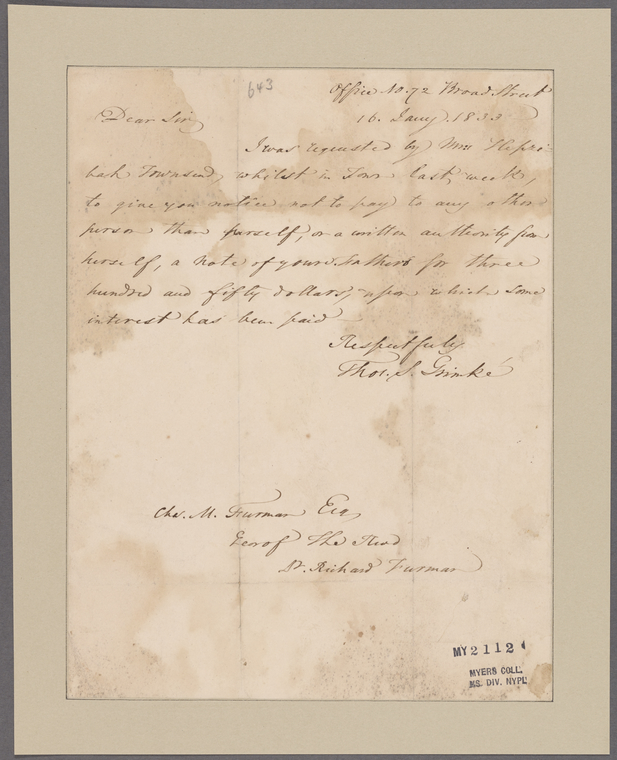 643
Office No. 72 Broad Street
16. Jany. 1833
Dear Sir,
I was requested by Mrs Hephzi
bah Townsend, whilst in Town last week,
to give you notice not to pay to any other
person than herself, or a written authority from
herself, a note of your Fathers for three
hundred and fifty dollars, upon which some
interest has been paid
Respectfully
Thos. S. Grimké
Chs. M. Furman Esq
Exor of The Revd
Dr. Richard Furman
MY 2112
MYERS COLL.
MS. DIV. NYPL